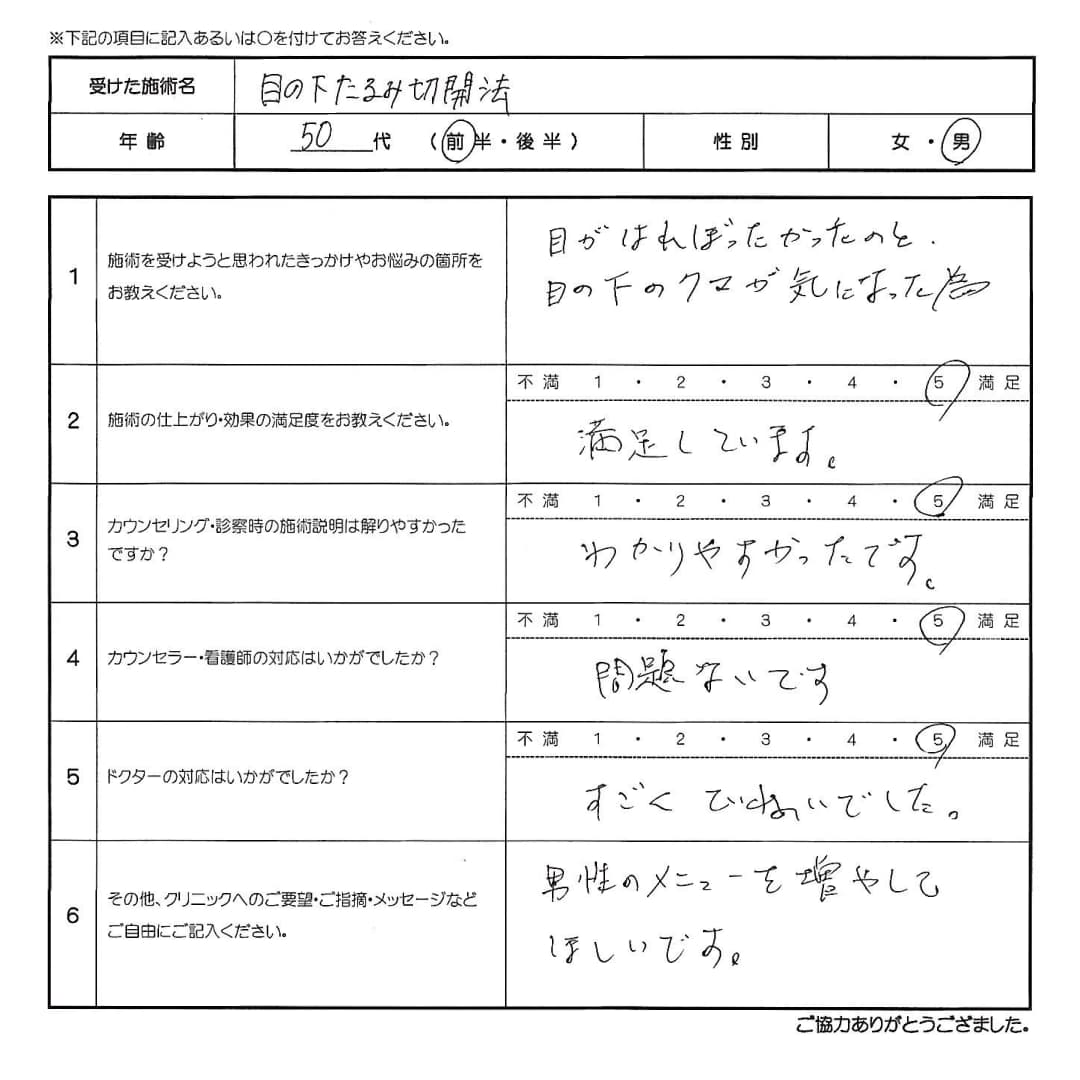 ※下記の項目に記入あるいは〇を付けてお答えください。
受けた施術名 目の下たるみ切開法
年齢 50代 (前半・後半) 性別 女・男
1 施術を受けようと思われたきっかけやお悩みの箇所を
お教えください。
目がはれぼったかったのと、
目の下のクマが気になった為
2 施術の仕上がり・効果の満足度をお教えください。
不満 1 ・ 2 ・ 3 ・ 4 ・ 5 満足
満足しています。
3 カウンセリング・診察時の施術説明は解りやすかった
ですか?
不満 1 ・ 2 ・ 3 ・ 4 ・ 5 満足
わかりやすかったです。
4 カウンセラー・看護師の対応はいかがでしたか?
不満 1 ・ 2 ・ 3 ・ 4 ・ 5 満足
問題ないです
5 ドクターの対応はいかがでしたか?
不満 1 ・ 2 ・ 3 ・ 4 ・ 5 満足
すごくていねいでした。
6 その他、クリニックへのご要望・ご指摘・メッセージなど
ご自由にご記入ください。
男性のメニューを増やして
ほしいです。
ご協力ありがとうございました。